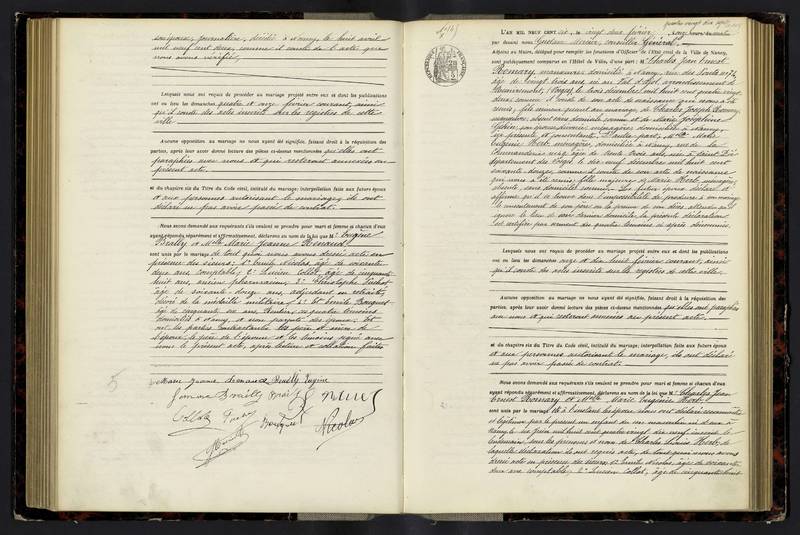 mil neuf cent deux, comme il conste de l'acte que
nous avons vérifié,
Lesquels nous ont requis de procéder au mariage projeté entre eux et dont les publications
ont eu lieu les dimanches quatre et onze février courant, ainsi
qu'il conste des actes inscrits sur les registres de cette
ville
Aucune opposition au mariage ne nous ayant été signifiée, faisant droit à la réquisition des
parties, après leur avoir donné lecture des pièces ci-dessus mentionnées qu'elles ont
paraphées avec nous et qui resteront annexées au
présent acte.
et du chapitre six du Titre du Code civil, intitulé du mariage; interpellation faite aux futurs époux
et aux personnes autorisant le mariage, ils ont
déclaré ne pas avoir passé de contrat.
Nous avons demandé aux requérants s'ils veulent se prendre pour mari et femme et chacun d'eux
ayant répondu séparément et affirmativement, déclarons au nom de la loi que M. Eugène
Brailly et Mlle Marie Jeanne Renaud
sont unis par le mariage de tout quoi nous avons dressé acte en
présence des sieurs; 1° Emile Nicolas, âgé de soixante
deux ans, comptable; 2° Lucien Collot, âgé de cinquante
huit ans, ancien pharmacien; 3° Christophe
âgé de soixante-douze ans, adjudant en retraite,
décoré de la médaille militaire; 4° et Emile
âgé de cinquante six ans, les quatre témoins
domiciliés à Nancy, et non parents des époux; Et
ont les parties contractantes, les père et mère de
l'époux, le père de l'épouse et les témoins signé avec
nous le présent acte, après lecture et collation faites
Brailly Eugène
Brailly
Collot
Nicolas
L'AN MIL NEUF CENT six, le vingt deux février, onze heures du matin
par devant nous Gustave conseiller Général,
Adjoint au Maire, délégué pour remplir les fonctions d'Officier de l'Etat civil de la Ville de Nancy,
sont publiquement comparus en l'Hôtel de Ville, d'une part : M. Charles Jean Ernest
Romary, manœuvre, domicilié à Nancy, rue
âgé de vingt trois ans, né au arrondissement de
Remiremont, (Vosges), le trois décembre mil huit cent quatre vingt
deux, comme il conste de son acte de naissance qui nous a été
remis, fils majeur de Charles Joseph Romary,
manœuvre, absent sans domicile connu et de Marie Joséphine
son épouse, ménagère, domiciliée à Nancy,
ici présente et consentante; D'autre part, Mlle Marie
Eugénie Horb, ménagère, domiciliée à Nancy, rue de la
âgée de trente trois ans, née à Saint Dié
département des Vosges, le dix neuf décembre mil huit cent
soixante-douze, comme il conste de son acte de naissance
qui nous a été remis, fille majeure de Marie Horb, ménagère,
absente, sans domicile connu. Le futur époux déclare et
affirme qu'il se trouve dans l'impossibilité de produire à son mariage
le consentement de son père ou la preuve de son décès, attendu qu'il
ignore le lieu de son dernier domicile, la présente déclaration
est certifiée par serment des quatre témoins ci-après dénommés.
Lesquels nous ont requis de procéder au mariage projeté entre eux et dont les publications
ont eu lieu les dimanches onze et dix huit février courant, ainsi
qu'il conste des actes inscrits sur les registres de cette ville.
Aucune opposition au mariage ne nous ayant été signifiée, faisant droit à la réquisition des
parties, après leur avoir donné lecture des pièces ci-dessus mentionnées qu'elles ont paraphées
avec nous et qui resteront annexées au présent acte.
et du chapitre six du Titre du Code civil, intitulé du mariage; interpellation faite aux futurs époux
et aux personnes autorisant le mariage, ils ont déclaré
ne pas avoir passé de contrat.
Nous avons demandé aux requérants s'ils veulent se prendre pour mari et femme et chacun d'eux
ayant répondu séparément et affirmativement, déclarons au nom de la loi que M. Charles Jean
Ernest Romary et Mlle Marie Eugénie Horb
sont unis par le mariage. Et à l'instant les époux nous ont déclaré reconnaître
et légitimer par le présent un enfant du sexe masculin né d'eux à
Nancy, le six juin mil huit cent quatre vingt dix neuf, inscrit le
lendemain, sous les prénoms et nom de Charles Louis Horb, de
laquelle déclaration ils ont requis acte, de tout quoi nous avons
dressé acte en présence des sieurs; 1° Emile Nicolas, âgé de soixante
deux ans, comptable; 2° Lucien Collot, âgé de cinquante huit